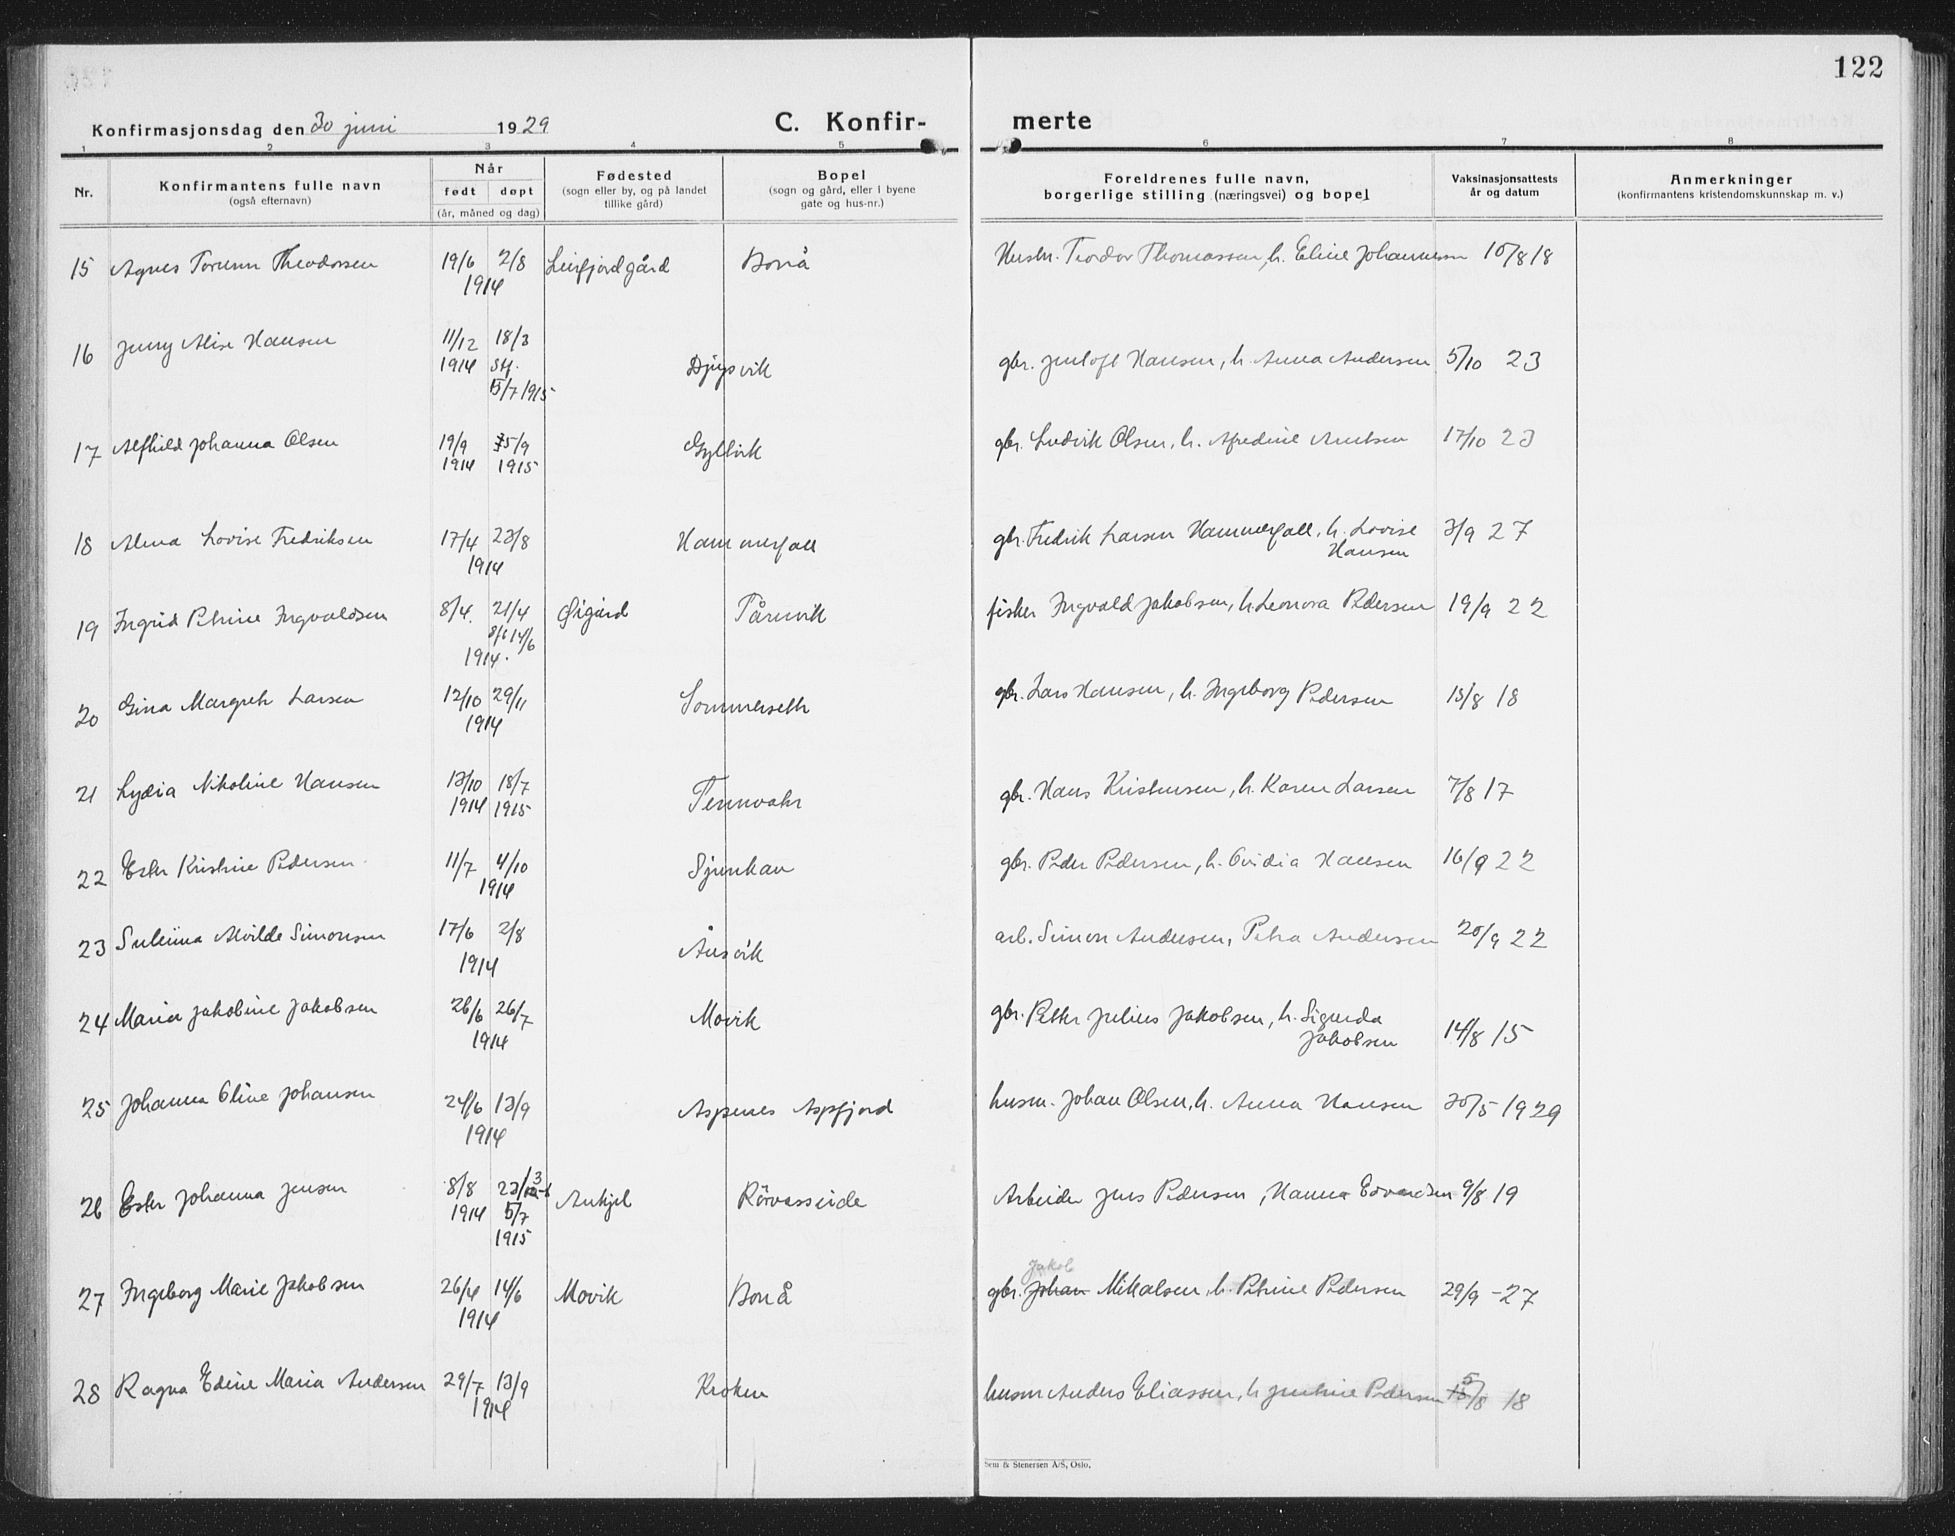 122
Konfirmasjonsdag den 30 juni 1929
C. Konfir-
merte
1 2 3 4 5 6 7 8
Nr.
Konfirmantens fulle navn
(også efternavn)
Når
født døpt
(år, måned og dag)
Fødested
(sogn eller by, og på landet
tillike gård)
Bopel
(sogn og gård, eller i byene
gate og hus-nr.)
Foreldrenes fulle navn,
borgerlige stilling (næringsvei) og bopel
Vaksinasjonsattests
år og datum
Anmerkninger
(konfirmantens kristendomskunnskap m. v.)
15 Agnes Torunn Theodorsen 19/6 2/8 Leirfjordgård Bonå Teodor Thomassen, h. Eline Johannessen 10/8 18
1914
16 Jenny Alise Hansen 11/12 18/3 Djupvik gbr. Jentoft Hansen, h. Anna Andersen 5/10 23
1914 Stf.
5/7 1915
17 Alfhild Johanna Olsen 19/9 5/9 Gyltvik gbr. Ludvik Olsen, h. Arntsen 17/10 23
1914 1915
18 Alma Lovise Fredriksen 17/4 23/8 Hammerfall gbr. Fredrik Larsen Hammerfall, h. Lovise 3/9 27
1914 Hansen
19 Ingrid Petrine Ingvaldsen 8/4. 21/4 Øigård Tårnvik fisker Ingvald Jakobsen, h. Leonora Pedersen 19/9 22
8/6 14/6
1914.
20 Gina Margreth Larsen 12/10 29/11 Sommerseth gbr. Lars Hansen, h. Ingeborg Pedersen 15/8 18
1914
21 Lydia Nikoline Hansen 13/10 18/7 Tennvatn gbr. Hans Kristensen, h. Karen Larsen 7/8 17
1914 1915
22 Ester Kristine Pedersen 11/7 4/10 Sjunkan gbr. Peder Pedersen, h. Ovidia Hansen 16/9 22
1914
23 Alvilde Simonsen 17/6 2/8 Ånsvik arb. Simon Andersen, Petra Andersen 20/9 22
1914
24 Maria Jakobine Jakobsen 26/6 26/7 Movik gbr. Petter Julius Jakobsen, h. Sigurda 14/8 15
1914 Jakobsen
25 Johanna Oline Johansen 24/6 13/9 Aspenes Aspfjord husm. Johan Olsen, h. Anna Hansen 30/5 1929
1914
26 Ester Johanna Jensen 8/8 23/3 Ankjel Rörvasseide Arbeider Jens Pedersen, Hanna Edvardsen 9/8 19
1914 5/7
1915
Jakob
27 Ingeborg Marie Jakobsen 26/4 14/6 Movik Bonå gbr. Johan Mikalsen, h. Petrine Pedersen 29/9 -27
1914
28 Ragna Edine Maria Andersen 29/7 13/9 Kroken husm Anders Eliassen, h Jentine Pedersen 5/8 18
1914
Sem & Stenersen A/S, Oslo.